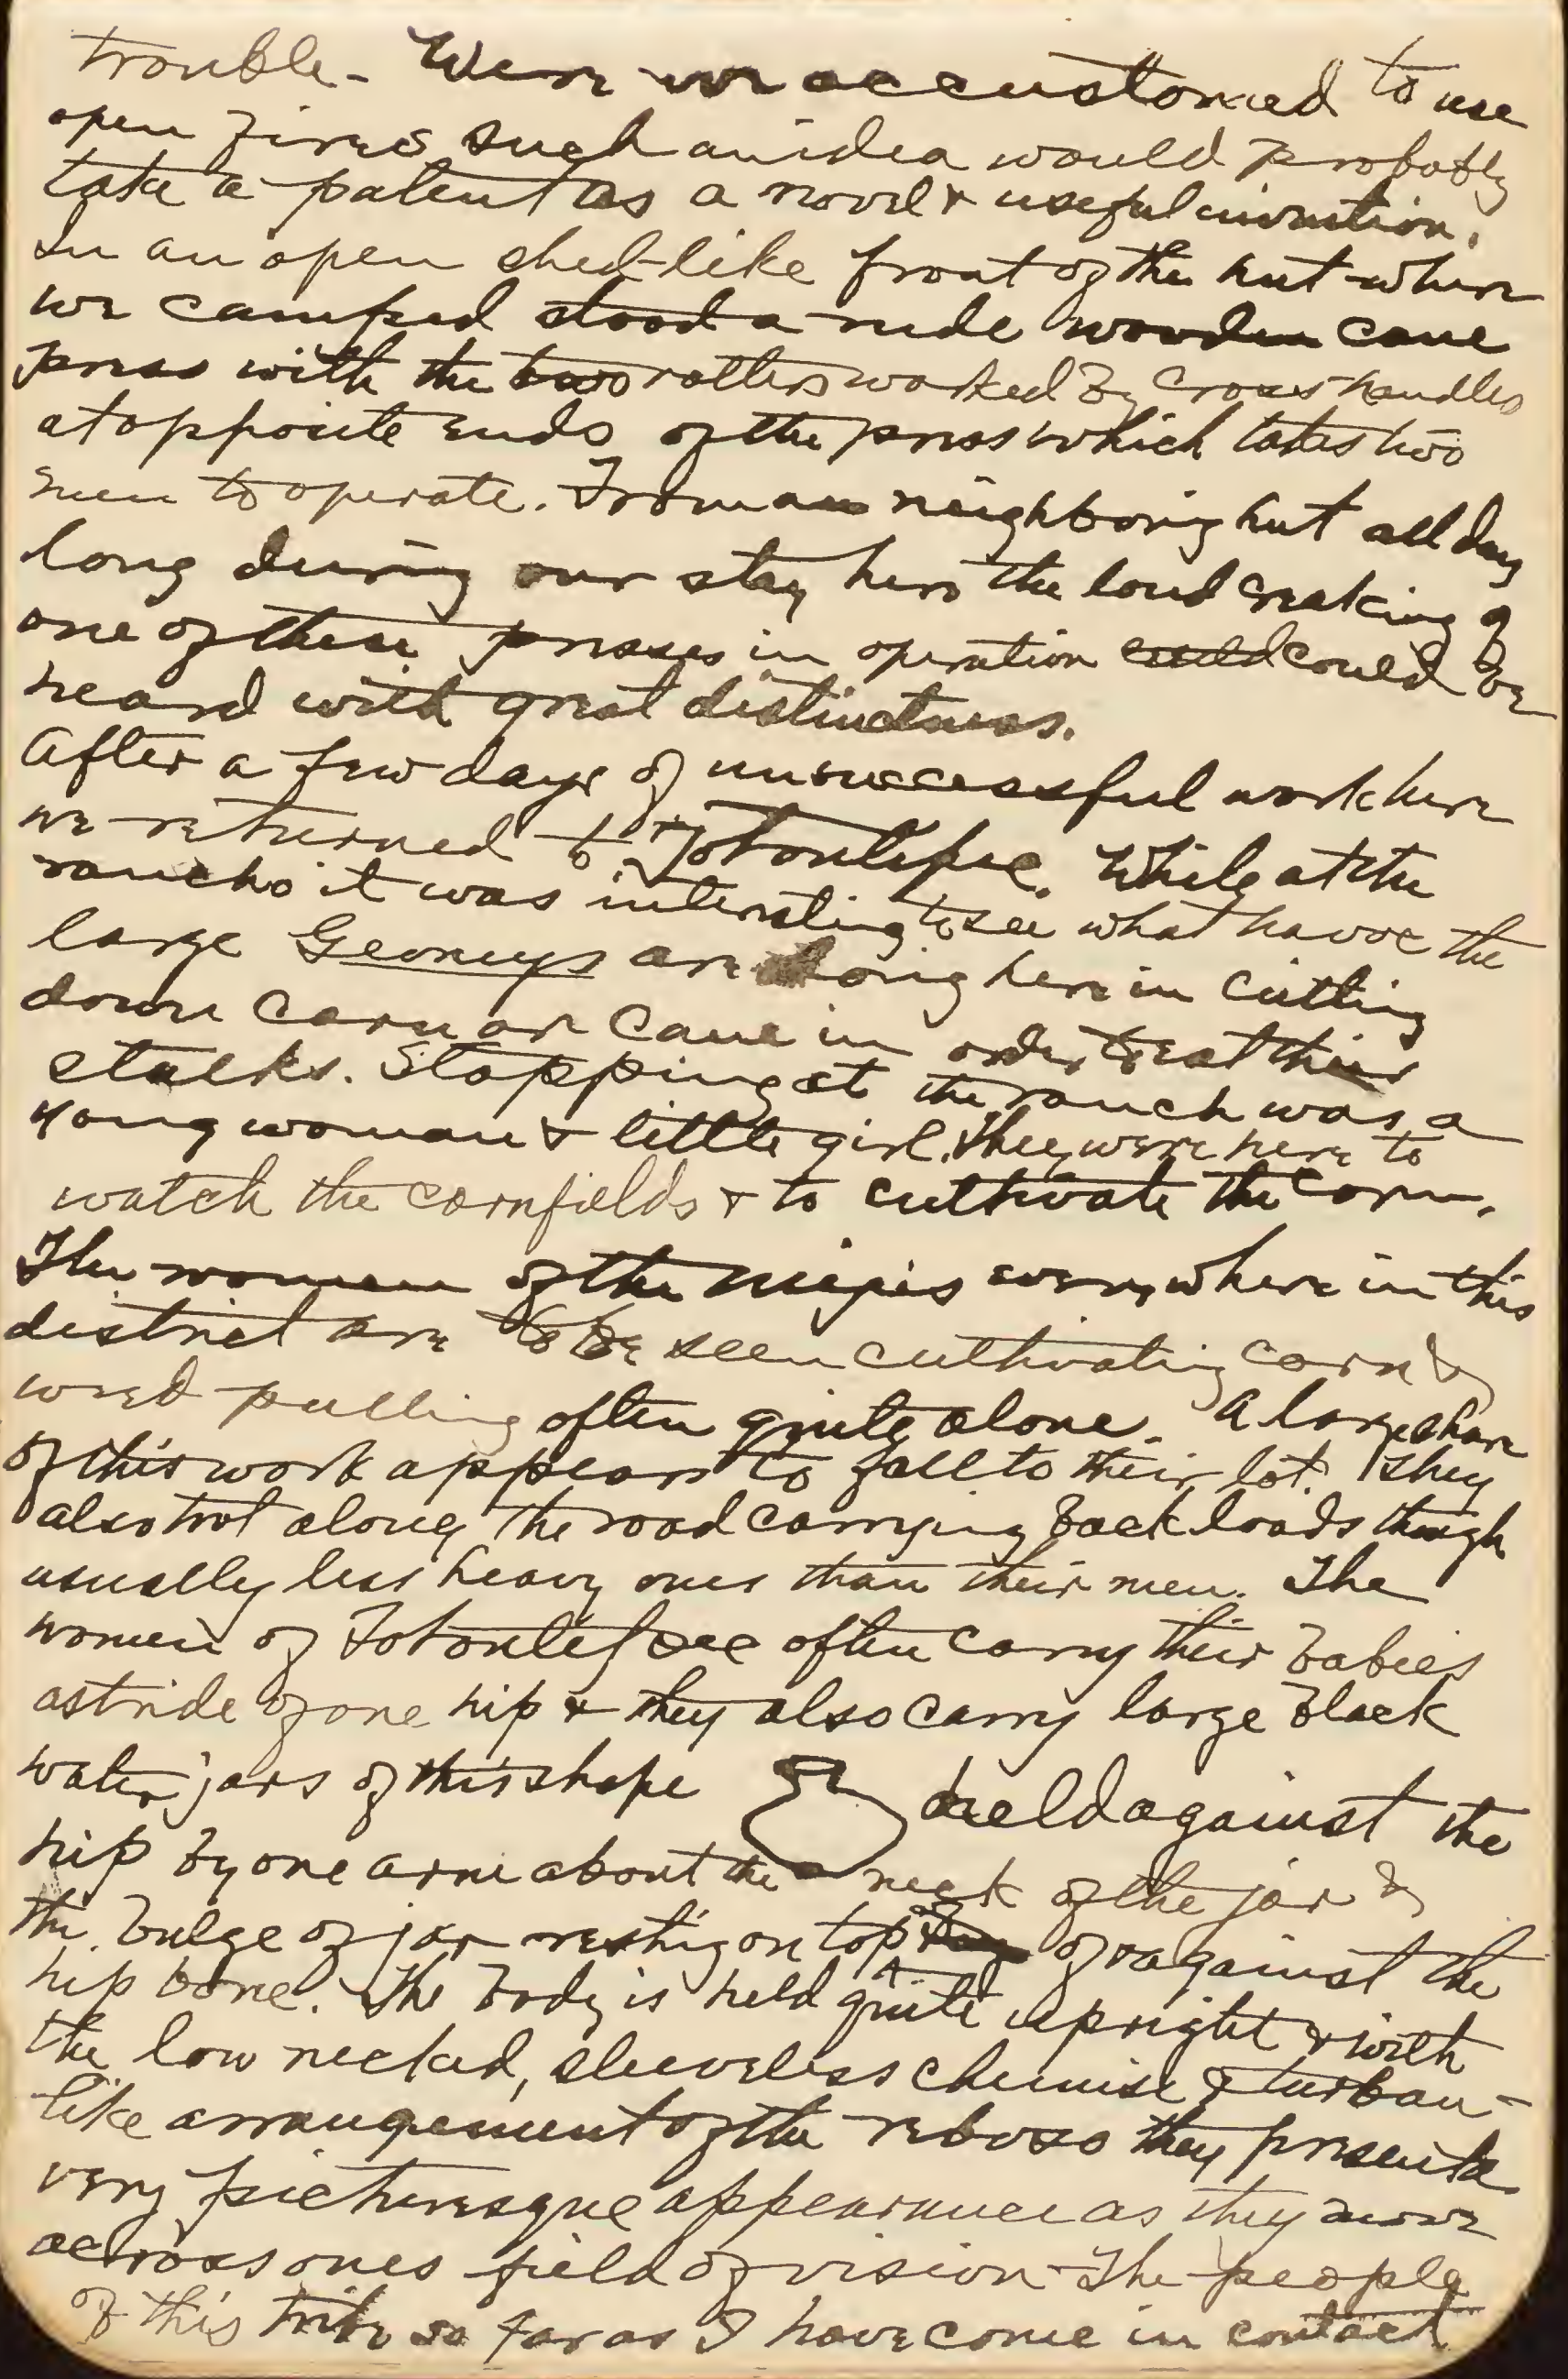 trouble - Were we accustomed to use
open fires such an idea would probably
take a patent as a novel & useful invention.
In an open shed-like front of the hut where
we camped stood a rude wooden cane
press with the two rollers worked by cross handles
at opposite ends of the press which takes two
men to operate. From a neighboring hut all day
long during our stay here the loud creaking of
one of these presses in operation could could be
heard with great distinctness.
After a few days of unsuccessful work here
we returned to Totontepec. While at the
rancho it was interesting to see what havoc the
large Geomys are doing here in cutting
down corn or cane in order to eat their
stalks. Stopping at the ranch was a
yong woman & little girl. They were here to
watch the cornfields & to cultivate the corn.
The women of the Mijis everywhere in this
district are to be seen cultivating corn &
weed pulling often quite alone. A large share
of this work appears to fall to their lot. They
also trot along the road carrying back loads though
usually less heavy ones than their men. The
women of Totontepec often carry their babies
astride of one hip & they also carry large black
water jars of this shape held against the
hip by one arm about the neck of the jar &
the bulge of jar resting on top of or against the
hip bone. The body is held quite upright & with
the low necked, sleeveless chemise & turban-
like arrangement of the reboso they present a
very picturesque appearance as they move
across ones field of vision - The people
of this tribe so far as I have come in contact